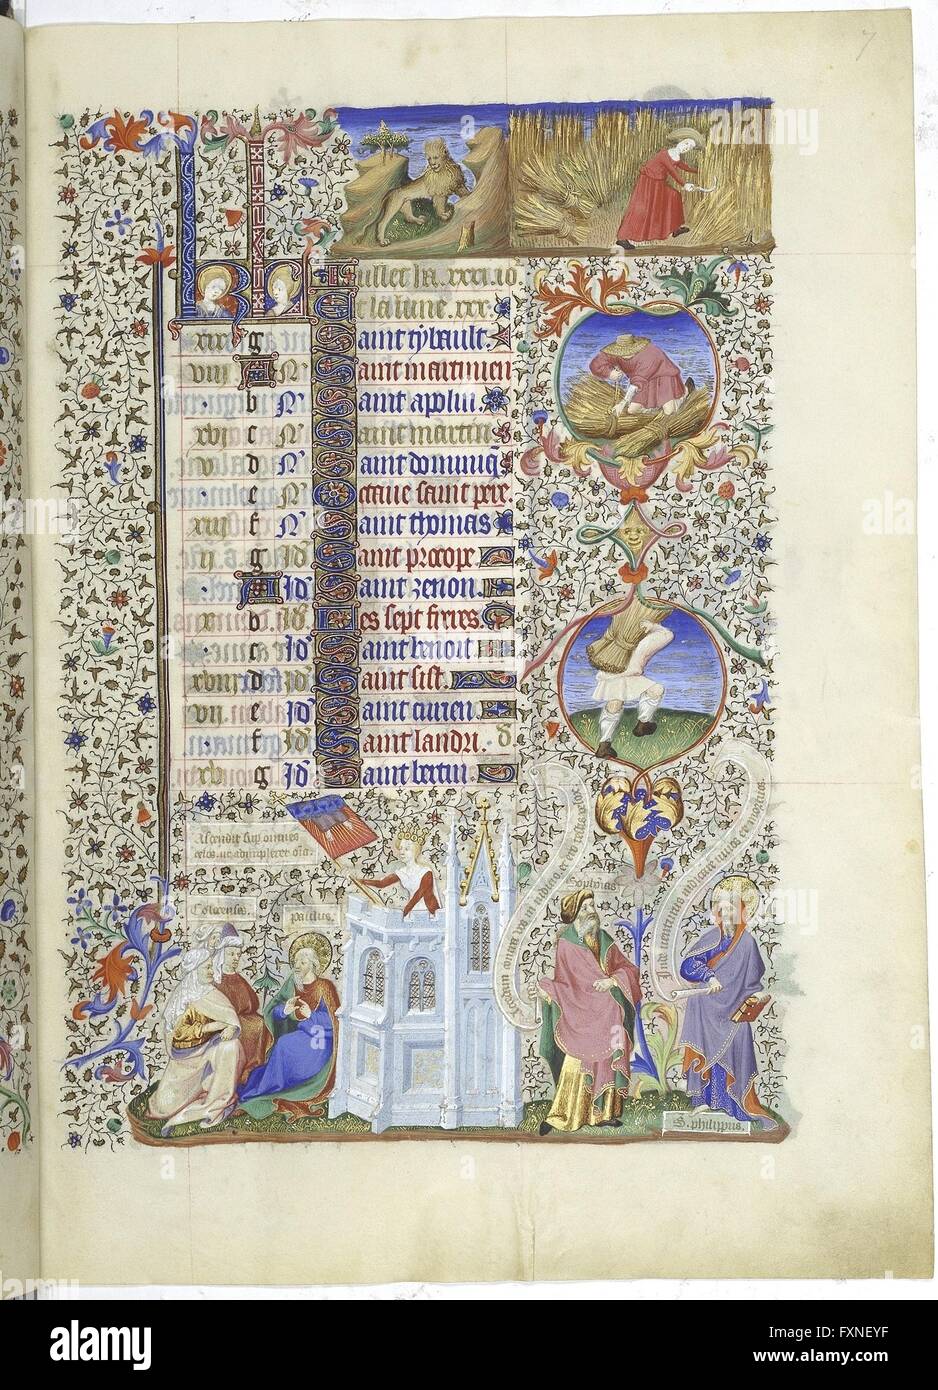 7
Juillet ia .xxxi. io
et la lune .xxx.
xix g Saint tybault.
viii A N Saint martinien
b N Saint apolin.
xvi c N Saint martin
v d N Saint dominiq
e N Octaue saint pere.
xiii f N Saint thomas
ii g Id Saint procope
A Id Saint zenon.
b Id Les sept freres.
c Id Saint benoit
xviii d Id Saint sixt.
vii e Id Saint turien.
f Id Saint landri.
xv g Id Saint bertin
Ascendit sup omnes
celos. ut adimpleret oia.
Colocenses.
paulus.
Sophonias
S. philippus.
alamy
Image ID: FXNEYF
www.alamy.com